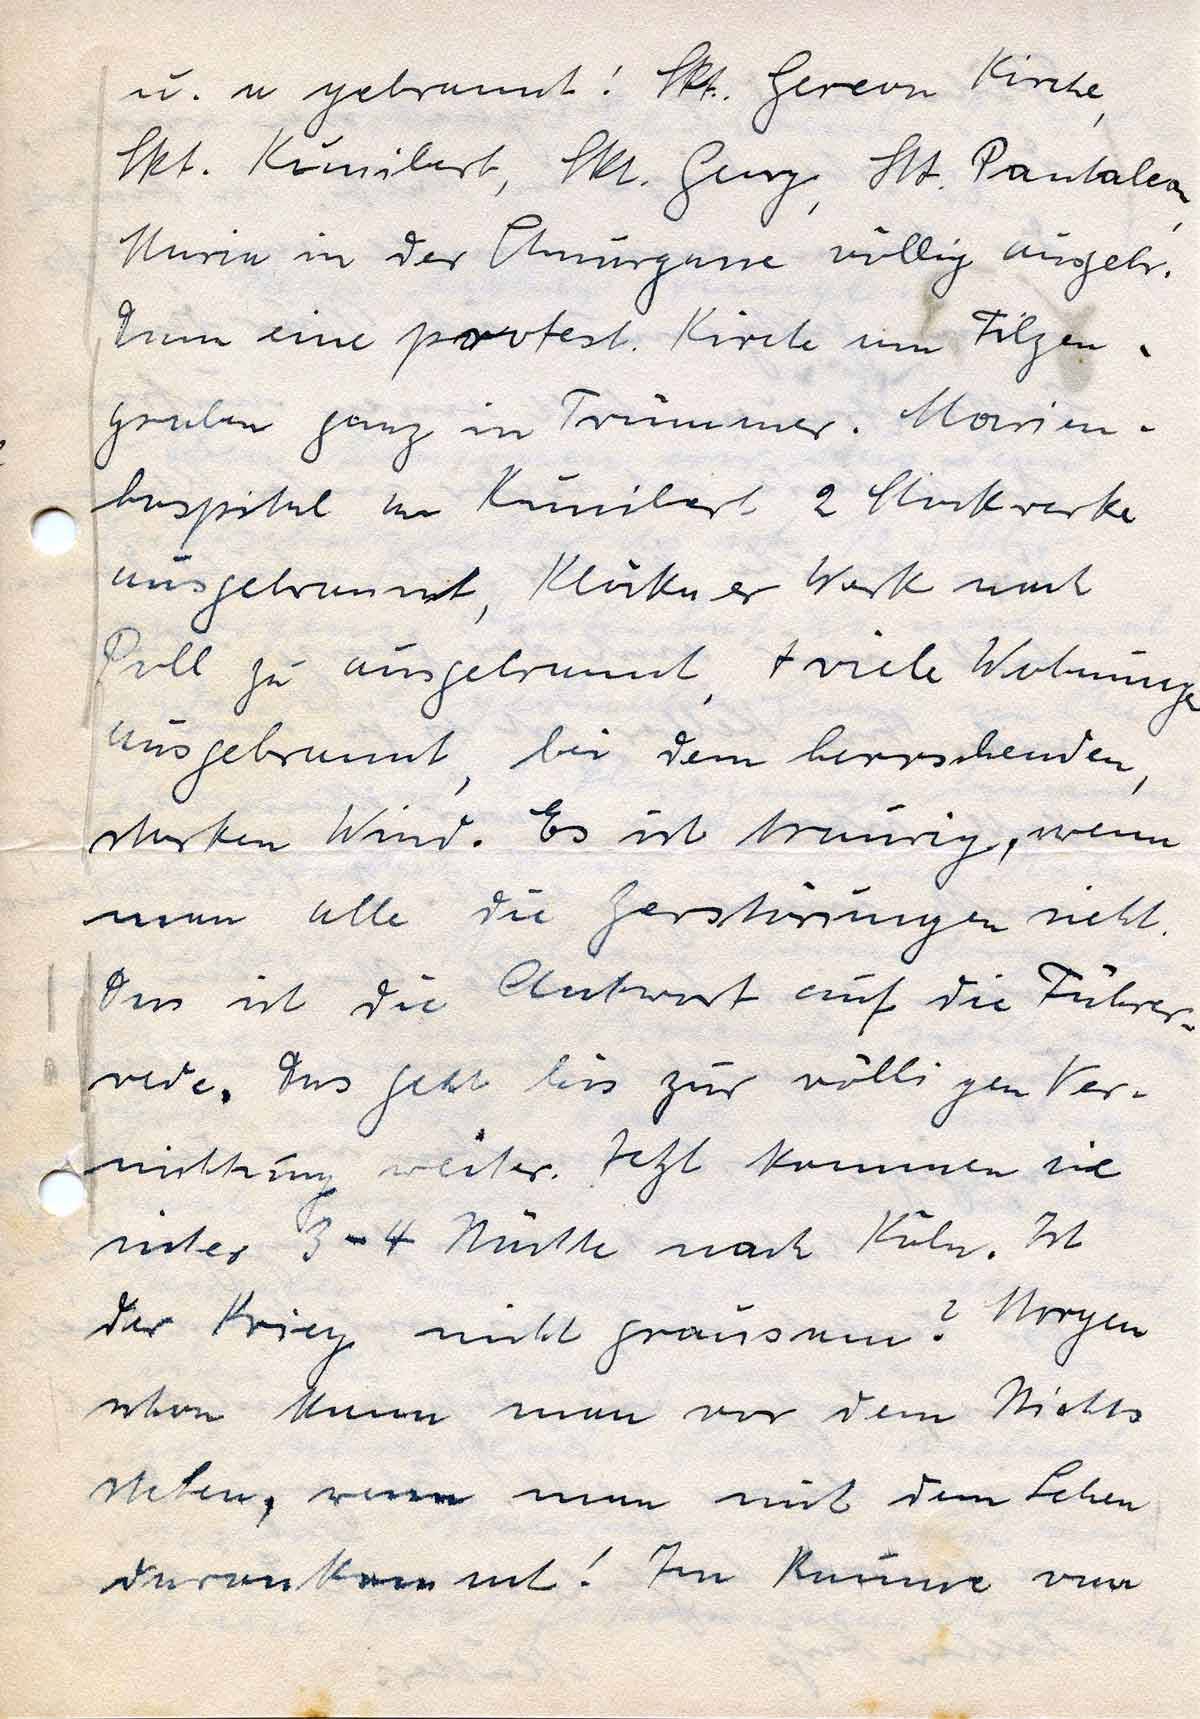 u. a gebrannt! Skt. Gereon Kirche,
Skt. Kunibert, Skt. Georg, Skt. Pantaleon,
Maria in der Schnurgasse völlig ausgebr.
Dann eine protest. Kirche am Filzen-
graben ganz in Trümmer. Marien-
hospital an Kunibert 2 Stockwerke
ausgebrannt, Klöckner Werk nach
Poll zu ausgebrannt, + viele Wohnungen
ausgebrannt, bei dem herrschenden,
starken Wind. Es ist traurig, wenn
man alle die Zerstörungen sieht.
Das ist die Antwort auf die Führer-
rede. Das geht bis zur völligen Ver-
nichtung weiter. Jetzt kommen sie
sicher 3-4 Nächte nach Köln. Ist
der Krieg nicht grausam? Morgen
schon kann man vor dem Nichts
stehen, wenn man mit dem Leben
davonkommt! Im Raume von